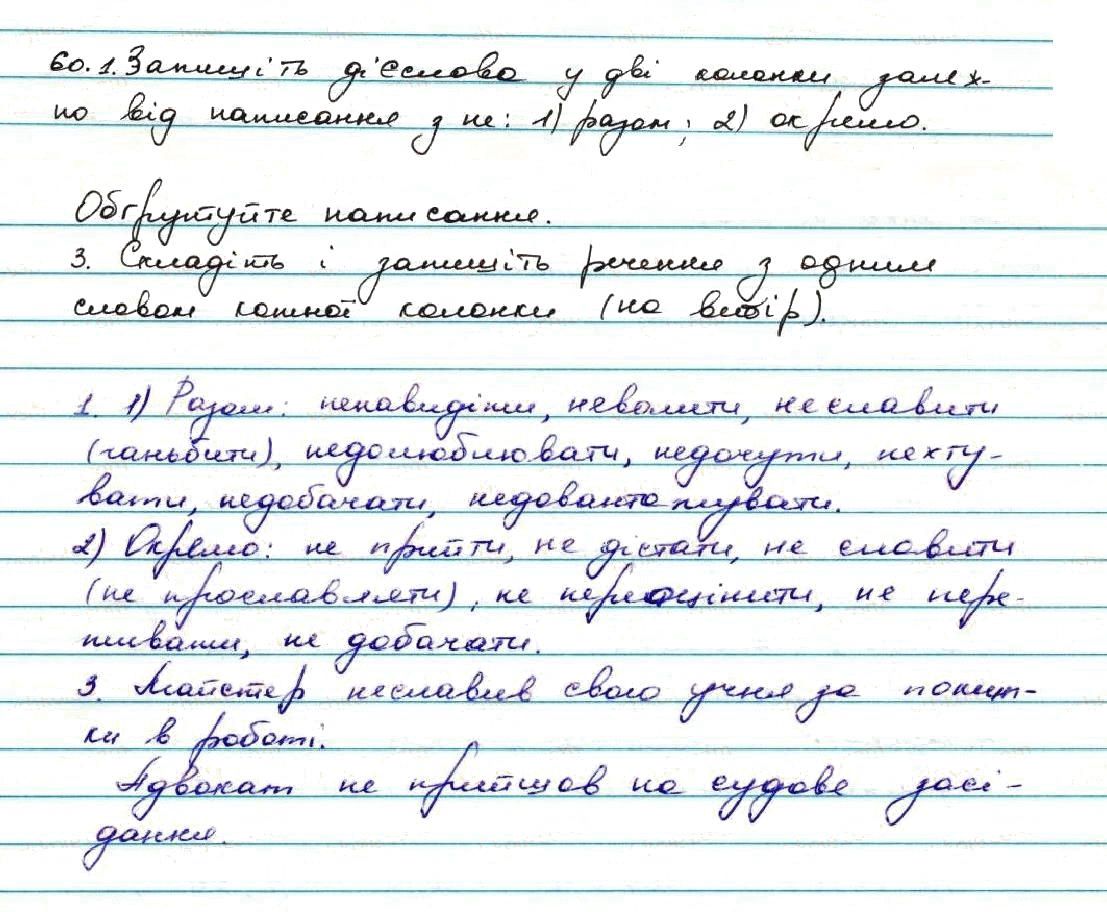 60. 1. Запишіть дієслова у дві колонки залеж-
но від написання з не: 1) разом; 2) окремо.
Обґрунтуйте написання.
3. Складіть і запишіть речення з одним
словом кожної колонки (на вибір).
1. 1) Разом: ненавидіти, неволити, неславити
(ганьбити), недолюблювати, недочути, нехту-
вати, недобачати, недовантажувати.
2) Окремо: не прийти, не дістати, не славити
(не прославляти), не переоцінити, не пере-
живати, не добачати.
3. Майстер неславив свого учня за помил-
ки в роботі.
Адвокат не прийшов на судове засі-
дання.